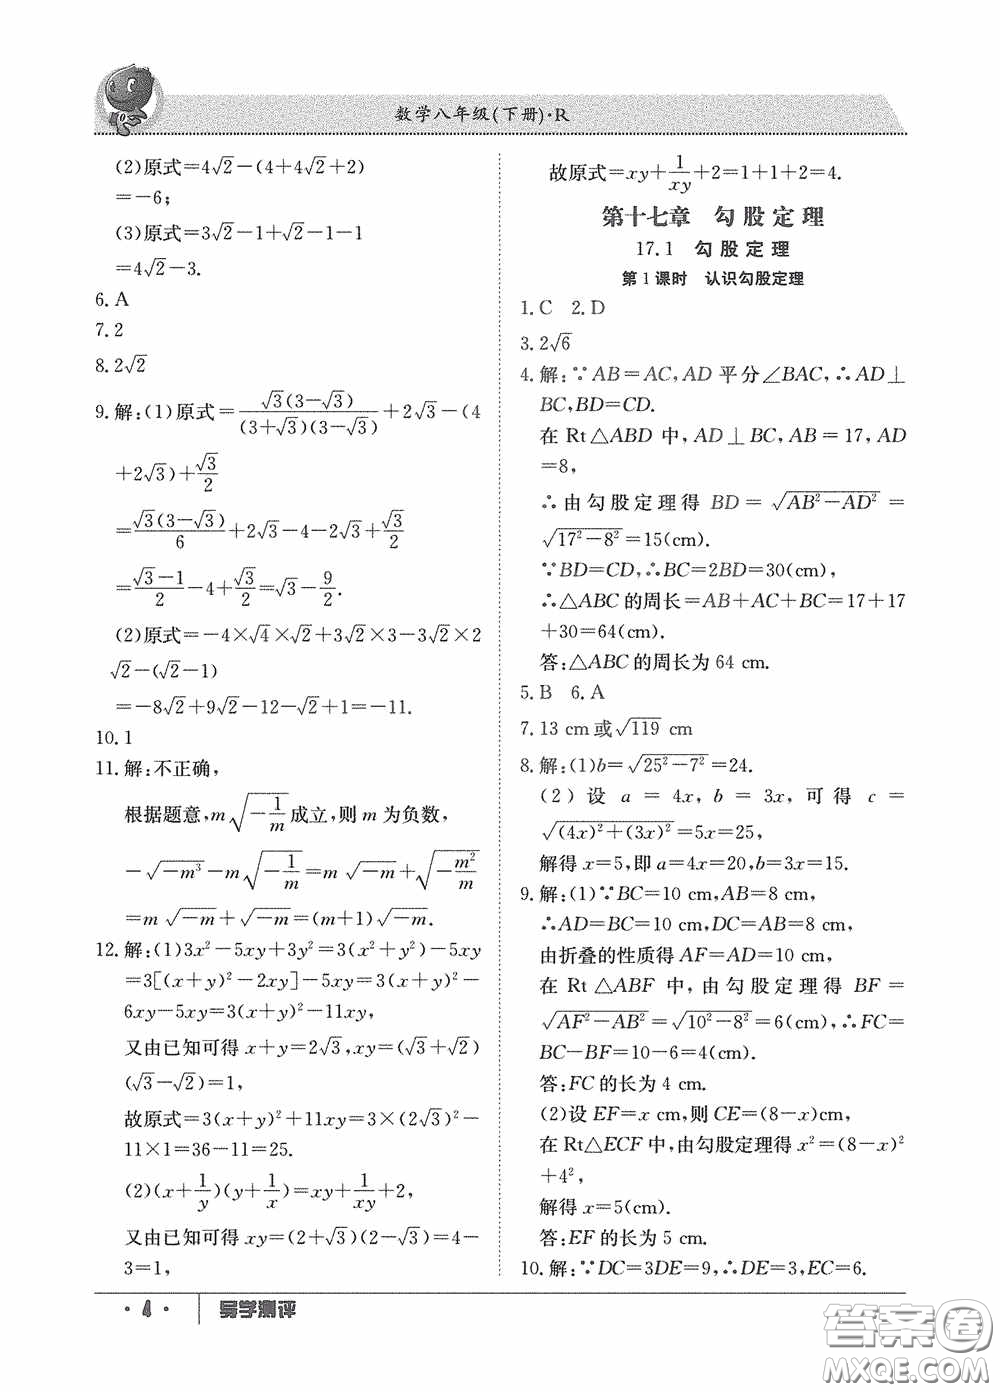 数学八年级(下册)·R
(2)原式=4√2-(4+4√2+2)
=-6;
(3)原式=3√2-1+√2-1-1
=4√2-3.
6. A
7. 2
8. 2√2
9. 解:(1)原式=√3(3-√3)/(3+√3)(3-√3)+2√3-(4
+2√3)+√3/2
=√3(3-√3)/6+2√3-4-2√3+√3/2
=√3-1/2-4+√3/2=√3-9/2.
(2)原式=-4×√4×√2+3√2×3-3√2×2
√2-(√2-1)
=-8√2+9√2-12-√2+1=-11.
10. 1
11. 解:不正确,
根据题意,m√(-1/m)成立,则 m 为负数,
-√(-m³)-m√(-1/m)=m√(-m)+√(-m²/m)
=m√(-m)+√(-m)=(m+1)√(-m).
12. 解:(1)3x²-5xy+3y²=3(x²+y²)-5xy
=3[(x+y)²-2xy]-5xy=3(x+y)²-
6xy-5xy=3(x+y)²-11xy,
又由已知可得 x+y=2√3,xy=(√3+√2)
(√3-√2)=1,
故原式=3(x+y)²+11xy=3×(2√3)²-
11×1=36-11=25.
(2)(x+1/y)(y+1/x)=xy+1/xy+2,
又由已知可得 xy=(2+√3)(2-√3)=4-
3=1,
故原式=xy+1/xy+2=1+1+2=4.
第十七章 勾股定理
17.1 勾股定理
第1课时 认识勾股定理
1. C 2. D
3. 2√6
4. 解:∵AB=AC,AD 平分∠BAC,∴AD⊥
BC,BD=CD.
在 Rt△ABD 中,AD⊥BC,AB=17,AD
=8,
∴由勾股定理得 BD=√(AB²-AD²)=
√(17²-8²)=15(cm).
∵BD=CD,∴BC=2BD=30(cm),
∴△ABC 的周长=AB+AC+BC=17+17
+30=64(cm).
答:△ABC 的周长为 64 cm.
5. B 6. A
7. 13 cm 或√119 cm
8. 解:(1)b=√(25²-7²)=24.
(2)设 a=4x,b=3x,可得 c=
√((4x)²+(3x)²)=5x=25,
解得 x=5,即 a=4x=20,b=3x=15.
9. 解:(1)∵BC=10 cm,AB=8 cm,
∴AD=BC=10 cm,DC=AB=8 cm,
由折叠的性质得 AF=AD=10 cm,
在 Rt△ABF 中,由勾股定理得 BF=
√(AF²-AB²)=√(10²-8²)=6(cm),∴FC=
BC-BF=10-6=4(cm).
答:FC 的长为 4 cm.
(2)设 EF=x cm,则 CE=(8-x)cm,
在 Rt△ECF 中,由勾股定理得 x²=(8-x)²
+4²,
解得 x=5(cm).
答:EF 的长为 5 cm.
10. 解:∵DC=3DE=9,∴DE=3,EC=6.
·4· 导学测评
答案圈
MXQE.COM